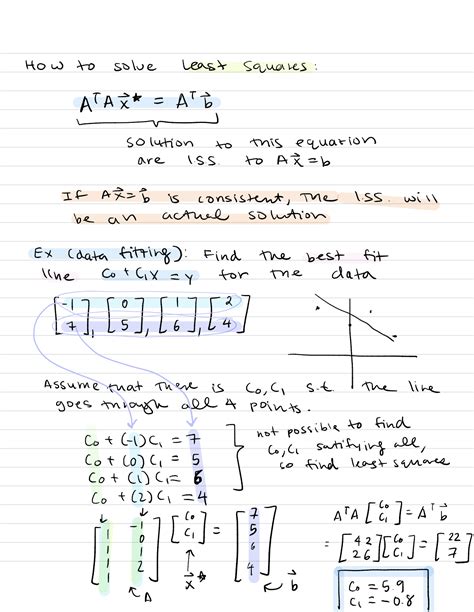 How to solve Least Squares:
AᵀA x⃗* = Aᵀb⃗
solution to this equation
are lss. to Ax⃗=b
If Ax⃗=b⃗ is consistent, the lss. will
be an actual solution
Ex (data fitting): Find the best fit
line C₀ + C₁x = y for the data
[-1 7], [0 5], [1 6], [2 4]
Assume that there is C₀,C₁ s.t. the line
goes through all 4 points.
C₀ + (-1) C₁ = 7
C₀ + (0) C₁ = 5
C₀ + (1) C₁ = 6
C₀ + (2) C₁ = 4
not possible to find
C₀,C₁ satifying all,
so find least square
[1 -1
1 0
1 1
1 2] [C₀ C₁] = [7 5 6 4]
A
x⃗*
b⃗
AᵀA [C₀ C₁] = Aᵀb⃗
= [4 2
2 6] [C₀ C₁] = [22 7]
C₀ = 5.9
C₁ = -0.8